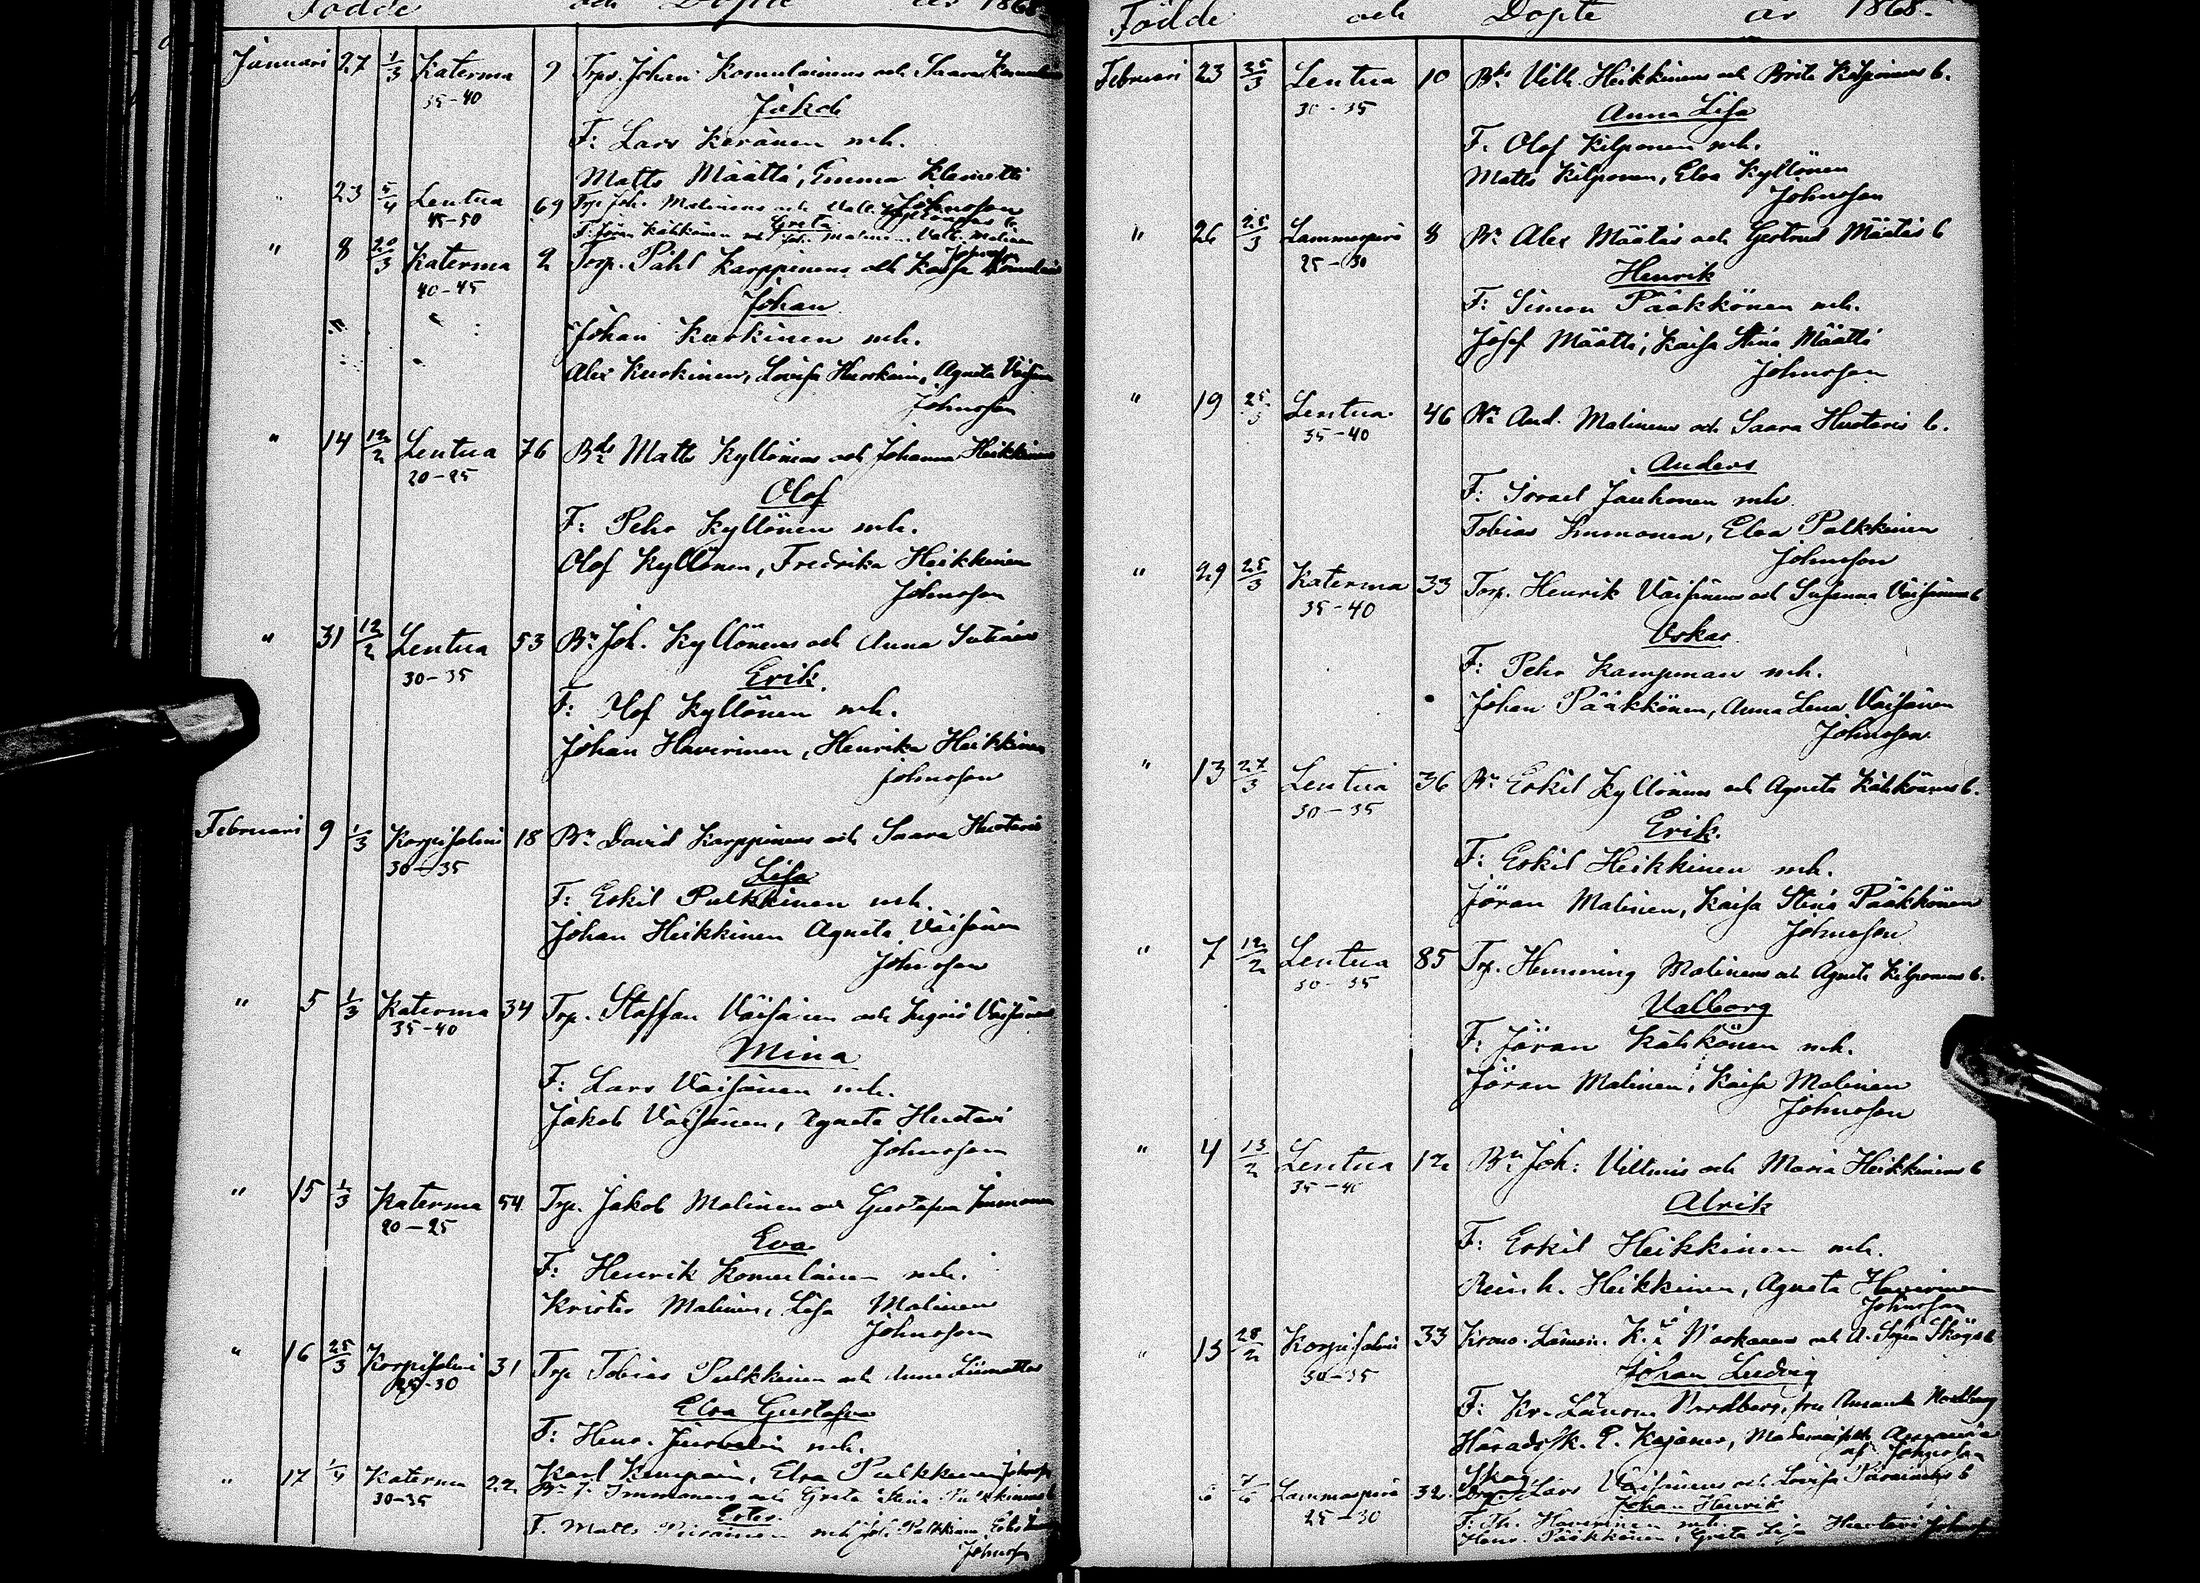 Födde och Döpte år 1868
Januari 27 1/3 Katerma 9 Torp. Johan Komulainens och Saara
35-40
Jakob
F: Lars Keränen m.h.
Matts Määttä, Emma Klemetti
Johnsson
" 23 5/4 Lentua 69 Torp. Joh. Malinens och Valb.
45-50
Greta
F: Jöran Kähkönen m.h. Joh. Malinen, Valb. Malinen
Johnsson
" 8 20/3 Katerma 2 Torp. Påhl Karppinens och Kaisa
40-45
Johan
Johan Kurkinen m.h.
Alex Kurkinen, Lovisa, Agneta Väisänen
Johnsson
" 14 12/2 Lentua 76 Bds Matts Kyllönens och Johanna Heikkinens
20-25
Olof
F: Pehr Kyllönen m.h.
Olof Kyllönen, Fredrika Heikkinen
Johnsson
" 31 12/2 Lentua 53 Bn Joh. Kyllönens och Anna
30-35
Erik
F: Olof Kyllönen m.h.
Johan Haverinen, Henrika Heikkinen
Johnsson
Februari 9 1/3 Korpisalmi 18 Bn David Karppinens och Saara Huotaris
30-35
Lisa
F: Eskil Pulkkinen m.h.
Johan Heikkinen Agneta Väisänen
Johnsson
" 5 1/3 Katerma 34 Torp. Staffan Väisänen och Ingrid Väisänens
35-40
Mina
F: Lars Väisänen m.h.
Jakob Väisänen, Agneta Huotari
Johnsson
" 15 1/3 Katerma 54 Trp. Jakob Malinen och Gustafva Immonen
20-25
Eva
F: Henrik Komulainen m.h.
Krister Malinen, Lisa Malinen
Johnsson
" 16 25/3 Korpisalmi 31 Trp Tobias Pulkkinen och Anna Liimattas
25-30
Elsa Gustafva
F: Henr. Juvelin m.h.
Karl Kempain, Elsa Pulkkinen Johnsson
" 17 1/4 Katerma 22 Bn J. Immonens och Greta Stina Pulkkinens
30-35
Ester
F. Matts Piirainen m.h. Joh. Pulkkinen
Johnsson
Födde och Döpte år 1868.
Februari 23 25/3 Lentua 10 Bds Vilh. Heikkinens och Brita Kilponens b.
30-35
Anna Lisa
F. Olof Kilponen m.h.
Matts Kilponen, Elsa Kyllönen
Johnsson
" 26 25/3 Lammasperä 8 Bn Alex Määtäs och Gertrud Määtäs b
25-30
Henrik
F: Simon Pääkkönen m.h.
Josef Määttä, Kaisa Stina Määttä
Johnsson
" 19 25/3 Lentua 46 Bn And. Malinens och Saara Huotaris b.
35-40
Anders
F: Israel Jauhonen m.h.
Tobias Immonen, Elsa Pulkkinen
Johnsson
" 29 25/3 Katerma 33 Torp. Henrik Väisänens och Susanna Väisänens b
35-40
Oskar
F: Pehr Kampman m.h.
Johan Pääkkönen, Anna Lena Väisänen
Johnsson
" 13 27/3 Lentua 36 Bn Eskil Kyllönens och Agneta Kähkönens b.
30-35
Erik
F: Eskil Heikkinen m.h.
Jöran Malinen, Kaisa Stina Pääkkönen
Johnsson
" 7 12/2 Lentua 85 Trp. Hemming Malinens och Agneta Kilponens b.
30-35
Valborg
F: Jöran Kähkönen m.h.
Jöran Malinen, Kaisa Malinen
Johnsson
" 4 13/2 Lentua 12 Bn Joh: Vilmis och Maria Heikkinens b
35-40
Alrik
F: Eskil Heikkinen m.h.
Reinh. Heikkinen, Agneta Haverinen
Johnsson
" 15 28/2 Korpisalmi 33 Krono Länsm. K. J. och A. Sofia Skogs b
30-35
Johan Ludvig
F: Kr. Länsm. Nordberg, fru Amanda Nordberg
Häradssk. P. Kajanus, Mademoiselle
af Johnsson
Skog
6 7/6 Lammasperä 32 Lars Väisänens och Lovisa b
25-30
Johan Henrik
F: Th. Haverinen m.h.
Henr. Pääkkönen, Greta Lisa Huotari Johnsson